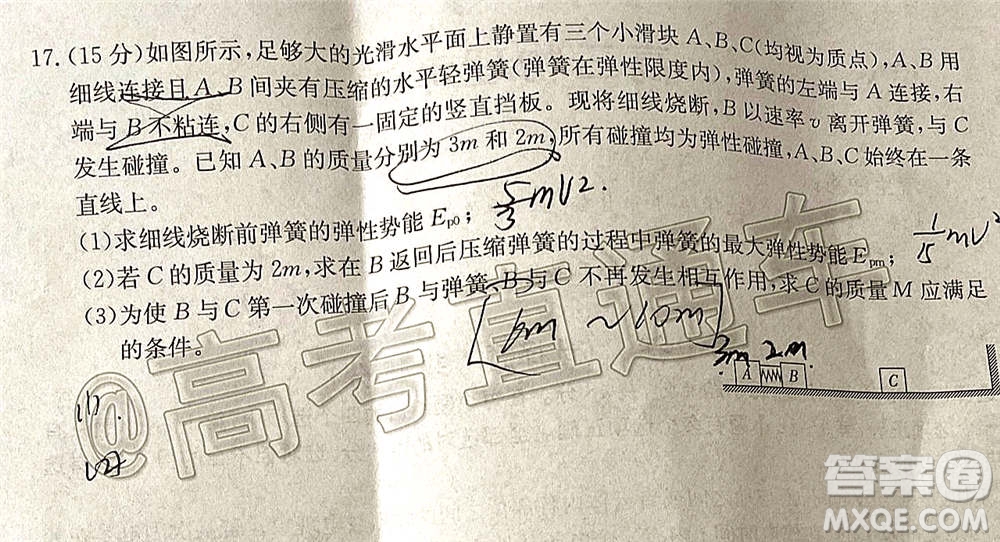 17.(15分)如图所示,足够大的光滑水平面上静置有三个小滑块A、B、C(均视为质点),A、B用
细线连接且A、B间夹有压缩的水平轻弹簧(弹簧在弹性限度内),弹簧的左端与A连接,右
端与B不粘连,C的右侧有一固定的竖直挡板。现将细线烧断,B以速率v离开弹簧,与C
发生碰撞。已知A、B的质量分别为3m和2m,所有碰撞均为弹性碰撞,A、B、C始终在一条
直线上。
(1)求细线烧断前弹簧的弹性势能Ep0; 5/3 mv2.
(2)若C的质量为2m,求在B返回后压缩弹簧的过程中弹簧的最大弹性势能Epm; 1/5 mv2
(3)为使B与C第一次碰撞后B与弹簧、B与C不再发生相互作用,求C的质量M应满足
的条件。 [6m ~ 10m]
3m 2m
A B C
(1)
(2)
@高考直通车
答案圈
MXQE.COM